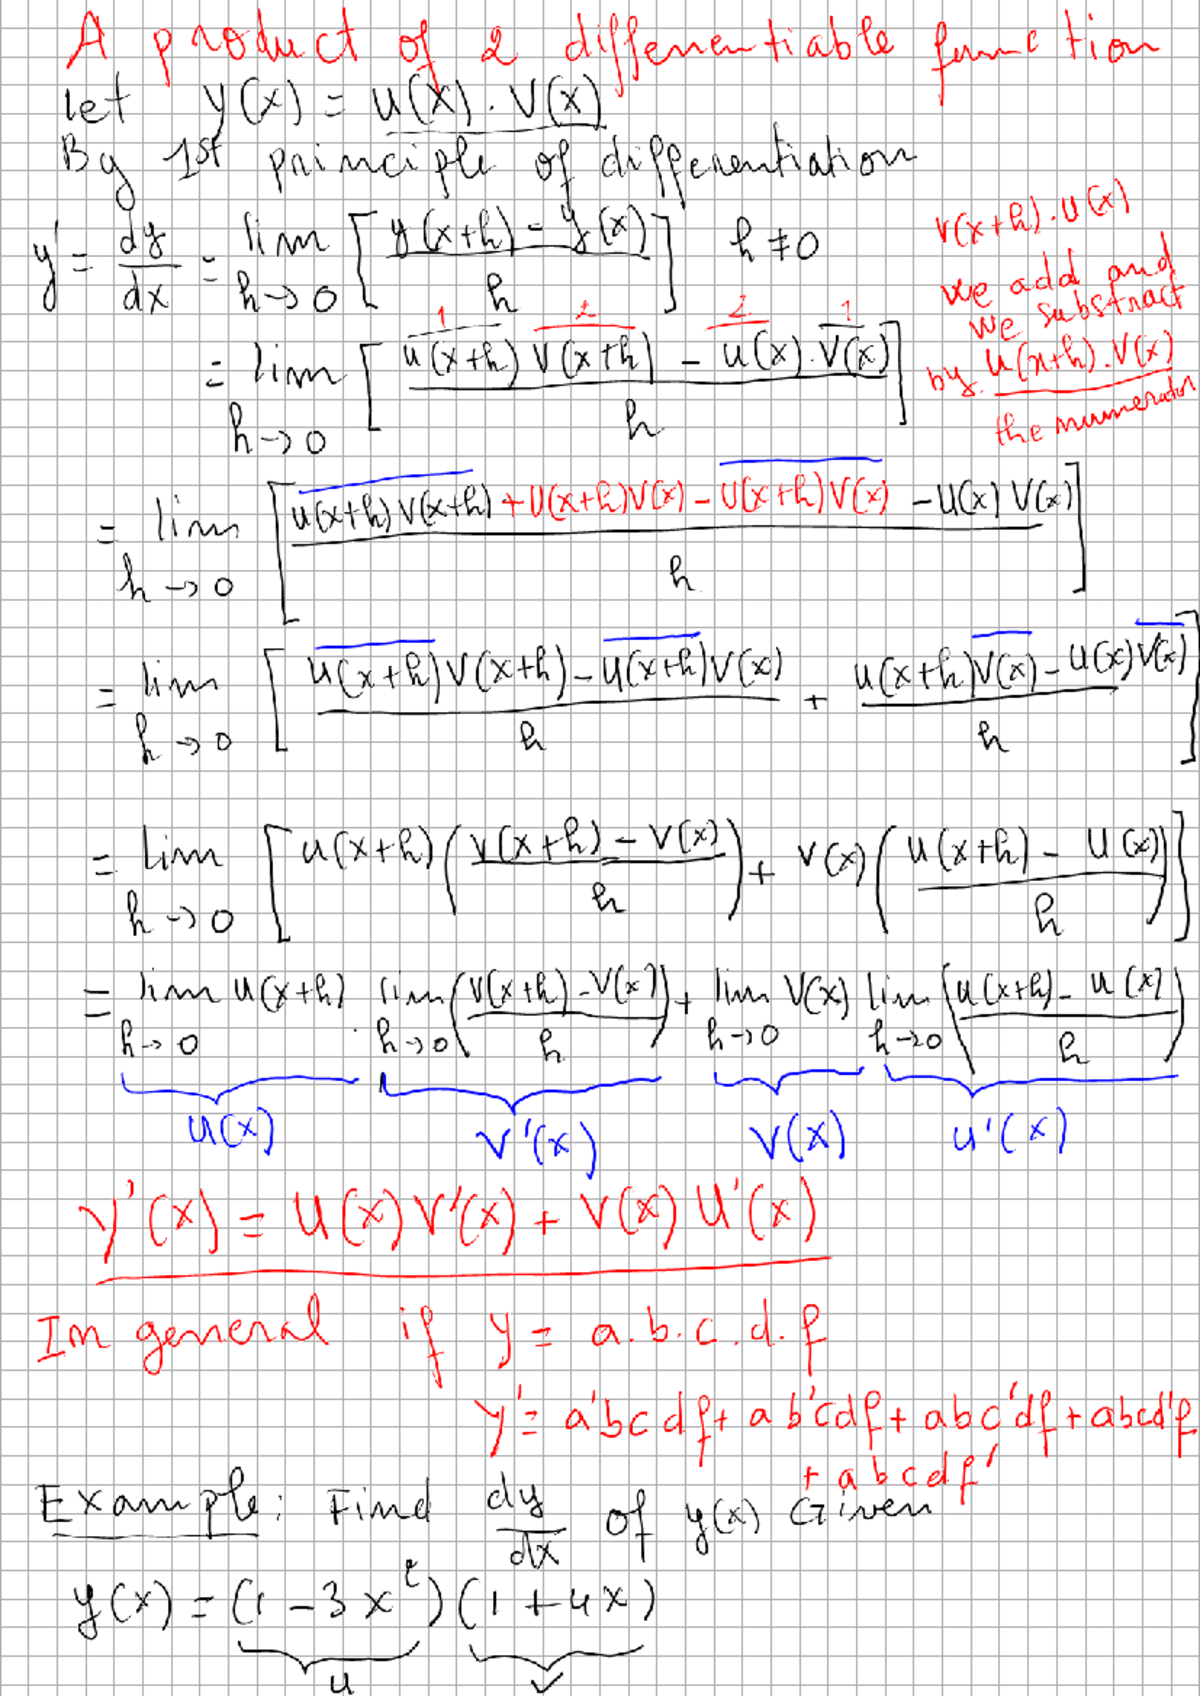 A product of 2 differentiable function
let y(x) = u(x) . v(x)
By 1st principle of differentiation
y' = dy/dx = lim h→0 [ (y(x+h) - y(x)) / h ] h ≠ 0
v(x+h).u(x)
we add and
we substract
by u(x+h).v(x)
the numerator
1 2 2 1
= lim h→0 [ (u(x+h) v(x+h) - u(x).v(x)) / h ]
= lim h→0 [ (u(x+h)v(x+h) + u(x+h)v(x) - u(x+h)v(x) - u(x)v(x)) / h ]
= lim h→0 [ (u(x+h)v(x+h) - u(x+h)v(x)) / h + (u(x+h)v(x) - u(x)v(x)) / h ]
= lim h→0 [ u(x+h) ( (v(x+h) - v(x)) / h ) + v(x) ( (u(x+h) - u(x)) / h ) ]
= lim h→0 u(x+h) lim h→0 ( (v(x+h) - v(x)) / h ) + lim h→0 v(x) lim h→0 ( (u(x+h) - u(x)) / h )
u(x) v'(x) v(x) u'(x)
y'(x) = u(x) v'(x) + v(x) u'(x)
In general if y = a.b.c.d.f
y' = a'bcdf + ab'cdf + abc'df + abcd'f
+ abcdf'
Example: Find dy/dx of y(x) Given
y(x) = (1 - 3x²)(1 + 4x)
u v